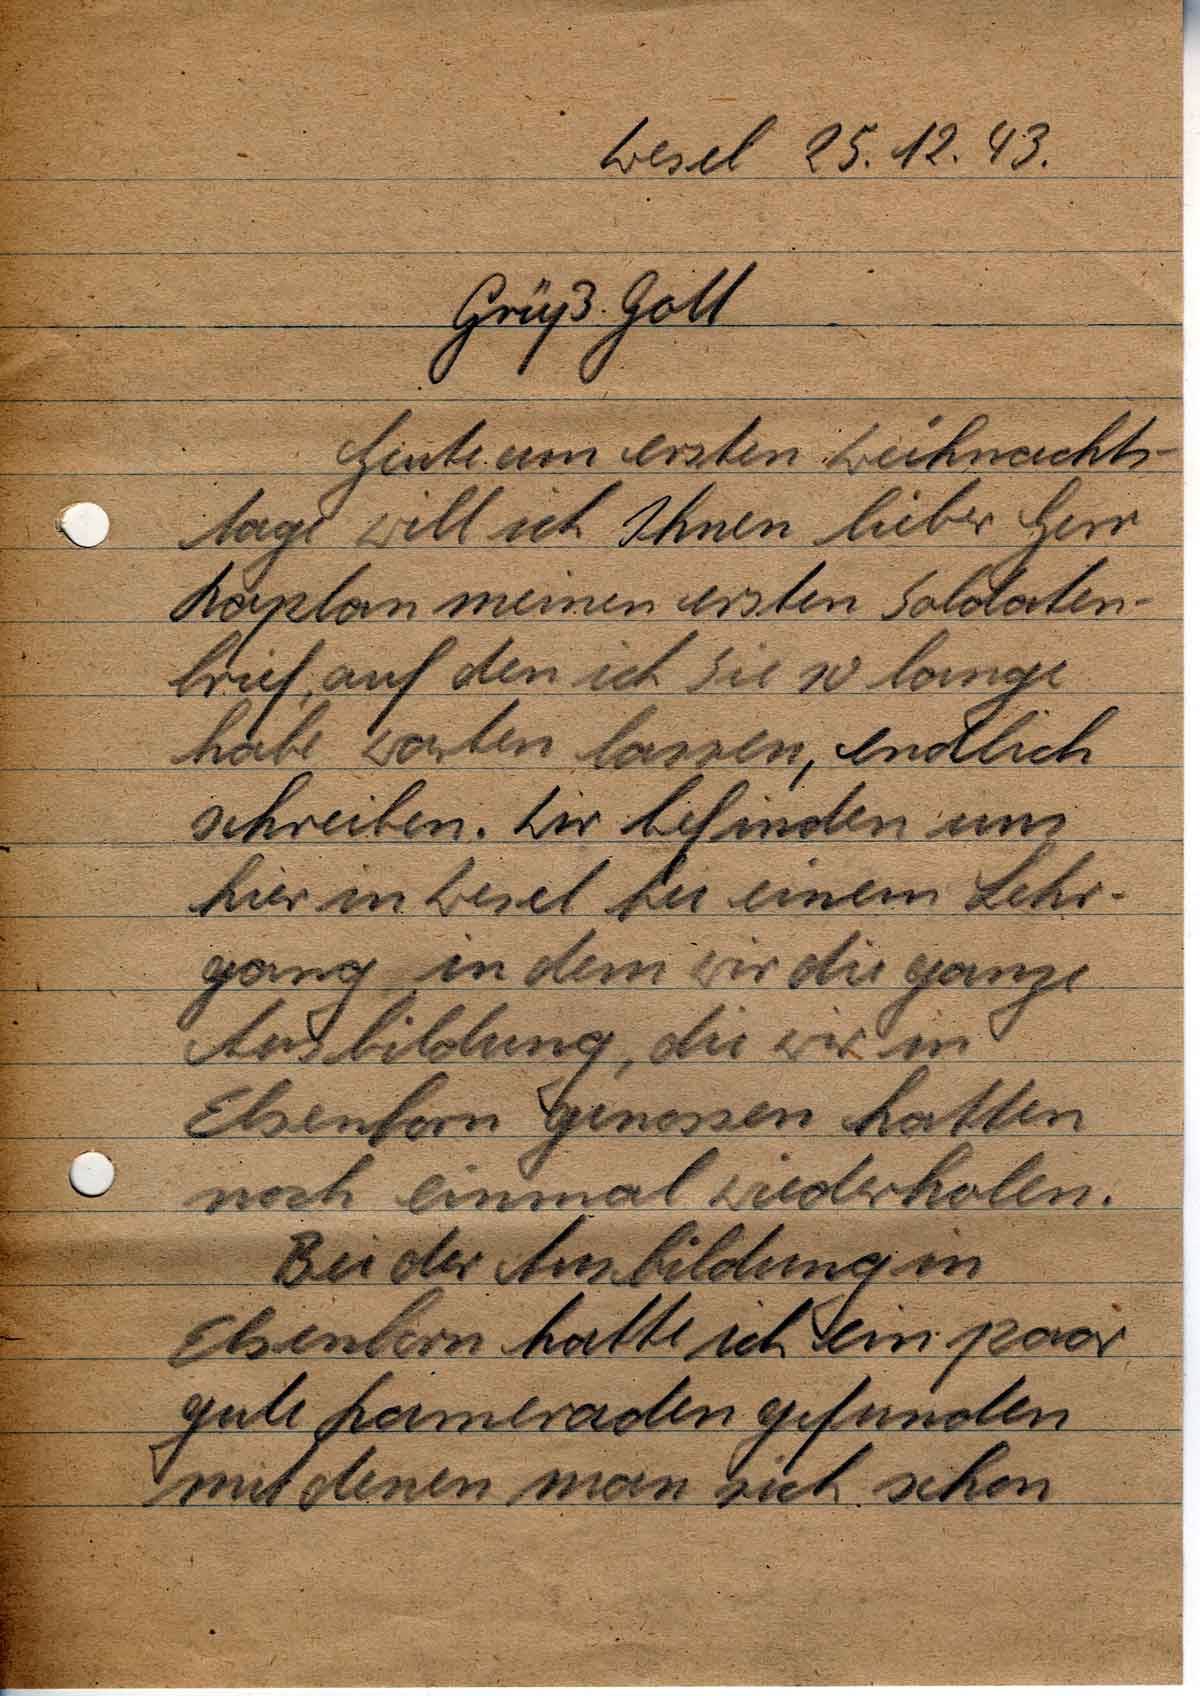 Wesel 25.12.43.
Grüß Gott
Heute am ersten Weihnachts-
tage will ich Ihnen lieber Herr
Kaplan meinen ersten Soldaten-
brief, auf den ich Sie so lange
habe warten lassen, endlich
schreiben. Wir befinden uns
hier in Wesel bei einem Lehr-
gang in dem wir die ganze
Ausbildung, die wir in
Elsenborn genossen hatten
noch einmal wiederholen.
Bei der Ausbildung in
Elsenborn hatte ich ein paar
gute Kameraden gefunden
mit denen man sich schon